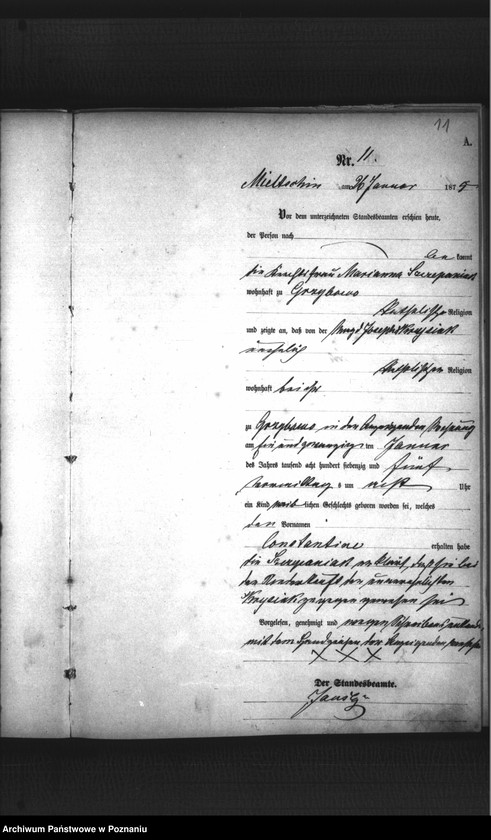 11
A.
Nr. 11.
Mieltschin am 26 Januar 1875
Vor dem unterzeichneten Standesbeamten erschien heute,
der Person nach
kannt
die Knechtsfrau Marianna Szczepaniak
wohnhaft zu Grzybowo
katholischer Religion
und zeigte an, daß von der Magd Josepha Krysiak
unehelich
katholischer Religion
wohnhaft bei ihr
zu Grzybowo in der Wohnung
am ein und zwanzigsten Januar
des Jahres tausend acht hundert siebenzig und fünf
Vormittags um acht Uhr
ein Kind weiblichen Geschlechts geboren worden sei, welches
den Vornamen
Constantine
erhalten habe
die Szczepaniak erklärt, daß sie bei
der Niederkunft der unverehelichten
Krysiak zugegen gewesen sei
Vorgelesen, genehmigt und wegen
mit dem Handzeichen der Anzeigenden versehen
XXX
Der Standesbeamte.
Archiwum Państwowe w Poznaniu